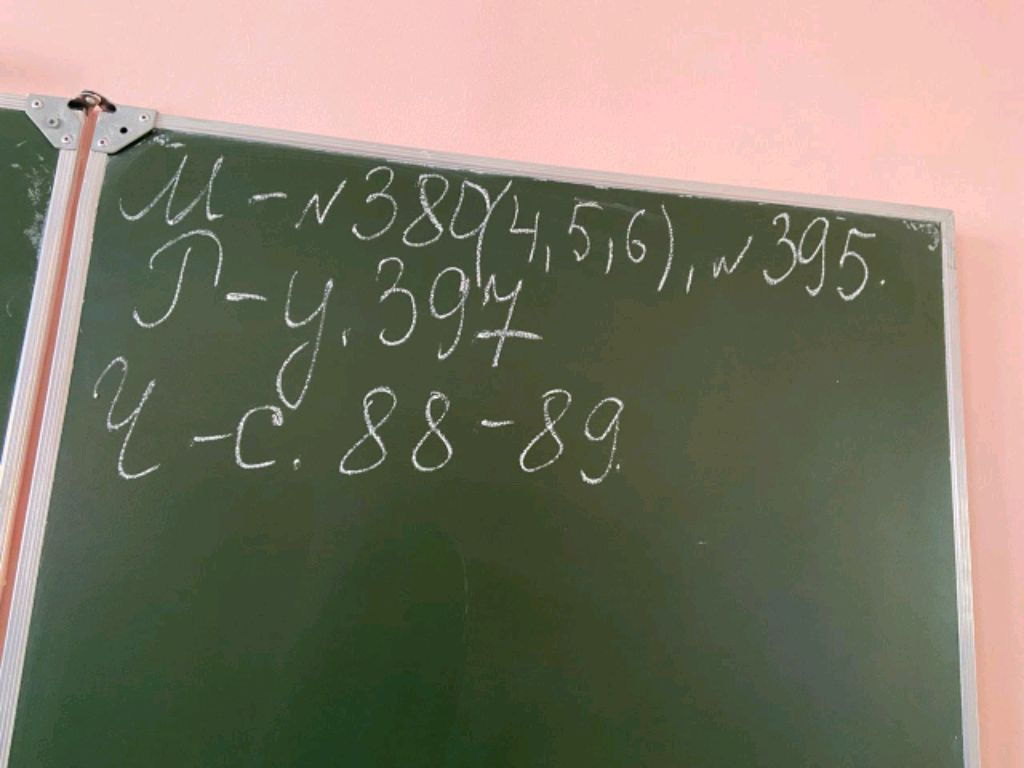 М - N 380(4,5,6), N 395.
Г - у. 397
Ч - с. 88-89.